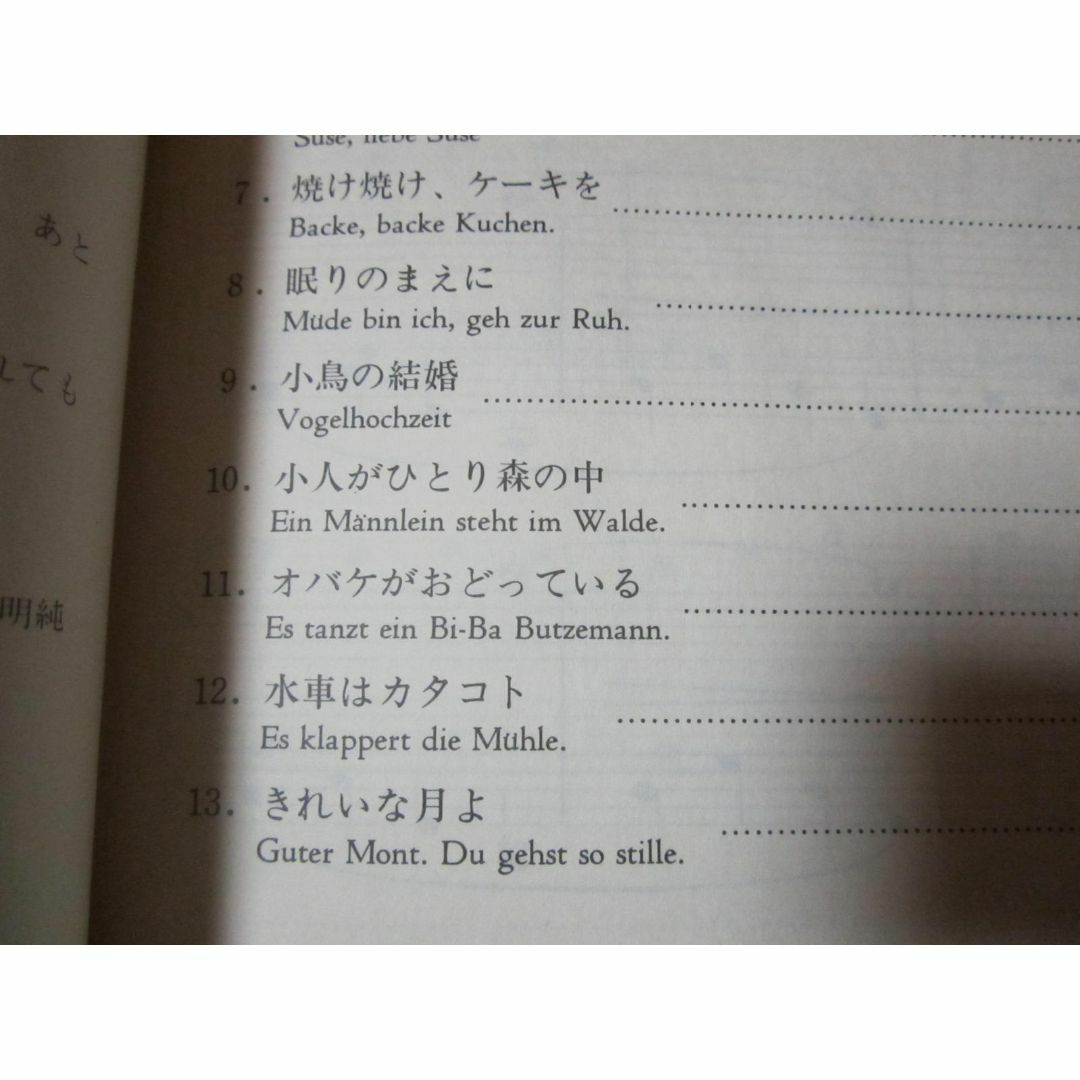 あと
ても
明純
Suse, liebe Suse
7. 焼け焼け、ケーキを
Backe, backe Kuchen.
8. 眠りのまえに
Müde bin ich, geh zur Ruh.
9. 小鳥の結婚
Vogelhochzeit
10. 小人がひとり森の中
Ein Männlein steht im Walde.
11. オバケがおどっている
Es tanzt ein Bi-Ba Butzemann.
12. 水車はカタコト
Es klappert die Mühle.
13. きれいな月よ
Guter Mont. Du gehst so stille.